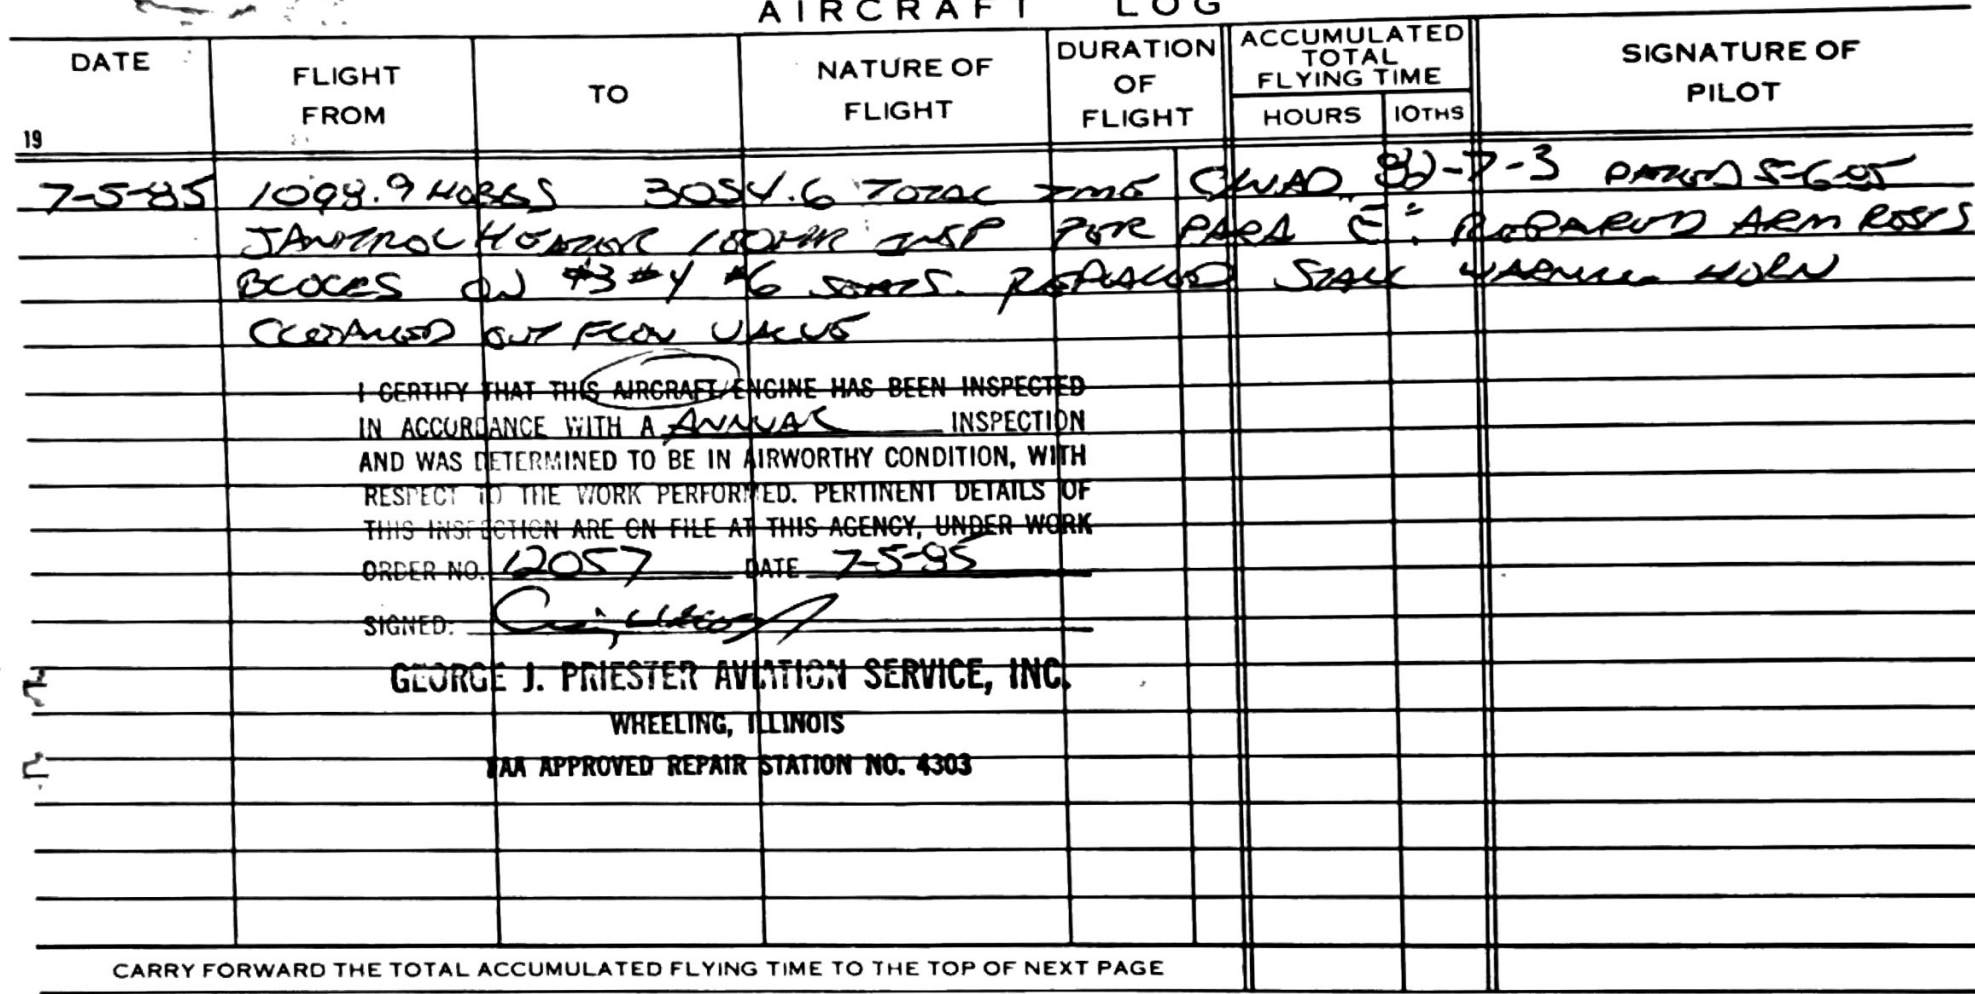 AIRCRAFT LOG
DATE
19
FLIGHT FROM
TO
NATURE OF FLIGHT
DURATION OF FLIGHT
ACCUMULATED TOTAL FLYING TIME
HOURS 10THS
SIGNATURE OF PILOT
7-5-85 1098.9 HOBBS 3054.6 TOTAL TIME C/W AD 82-7-3 DATED 5-6-85
JANITROL HEATER 100HR INSP PER PARA E. REPAIRED ARM RESTS
BLOCKS ON #3 #4 #6 SEATS. REPLACED STALL WARNING HORN
CLEANED OUT FLOW VALVE
I CERTIFY THAT THIS AIRCRAFT/ENGINE HAS BEEN INSPECTED
IN ACCORDANCE WITH A ANNUAL INSPECTION
AND WAS DETERMINED TO BE IN AIRWORTHY CONDITION, WITH
RESPECT TO THE WORK PERFORMED. PERTINENT DETAILS OF
THIS INSPECTION ARE ON FILE AT THIS AGENCY, UNDER WORK
ORDER NO. 12057 DATE 7-5-85
SIGNED:
GEORGE J. PRIESTER AVIATION SERVICE, INC.
WHEELING, ILLINOIS
FAA APPROVED REPAIR STATION NO. 4303
CARRY FORWARD THE TOTAL ACCUMULATED FLYING TIME TO THE TOP OF NEXT PAGE